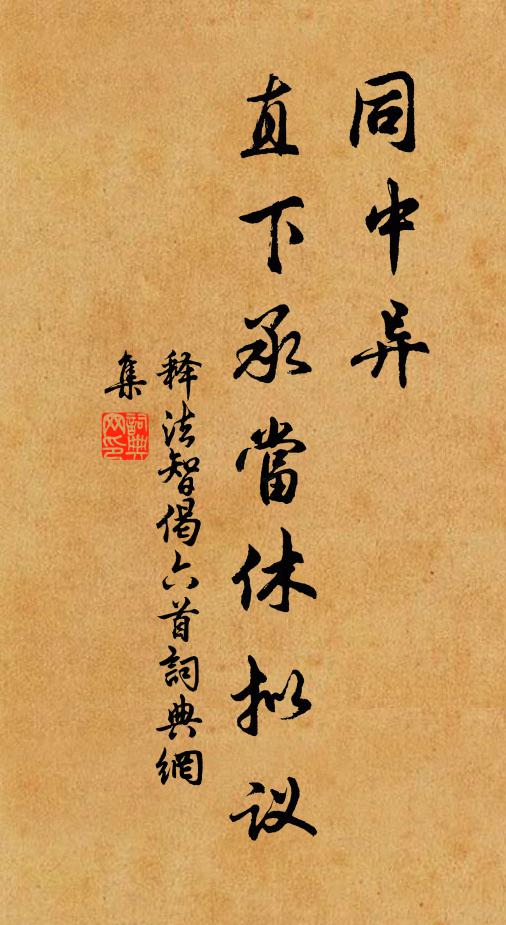 同中异
直下承當休拟议
释法智偈六首詞典網
集
詞典
网印